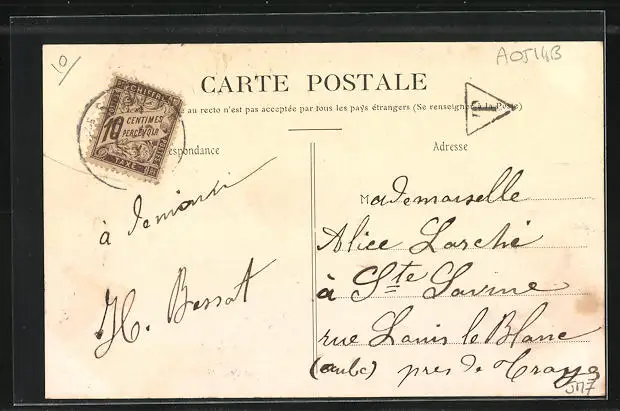 10
A0514B
CARTE POSTALE
au recto n'est pas acceptée par tous les pays étrangers (Se renseigner à la Poste)
T
CHIFFRE
10 CENTIMES
A PERCEVOIR
TAXE
respondance
Adresse
à demain
H. Bossat
Mademoiselle
Alice Larché
à Ste Savine
rue Louis le Blanc
(aube) près de Troyes